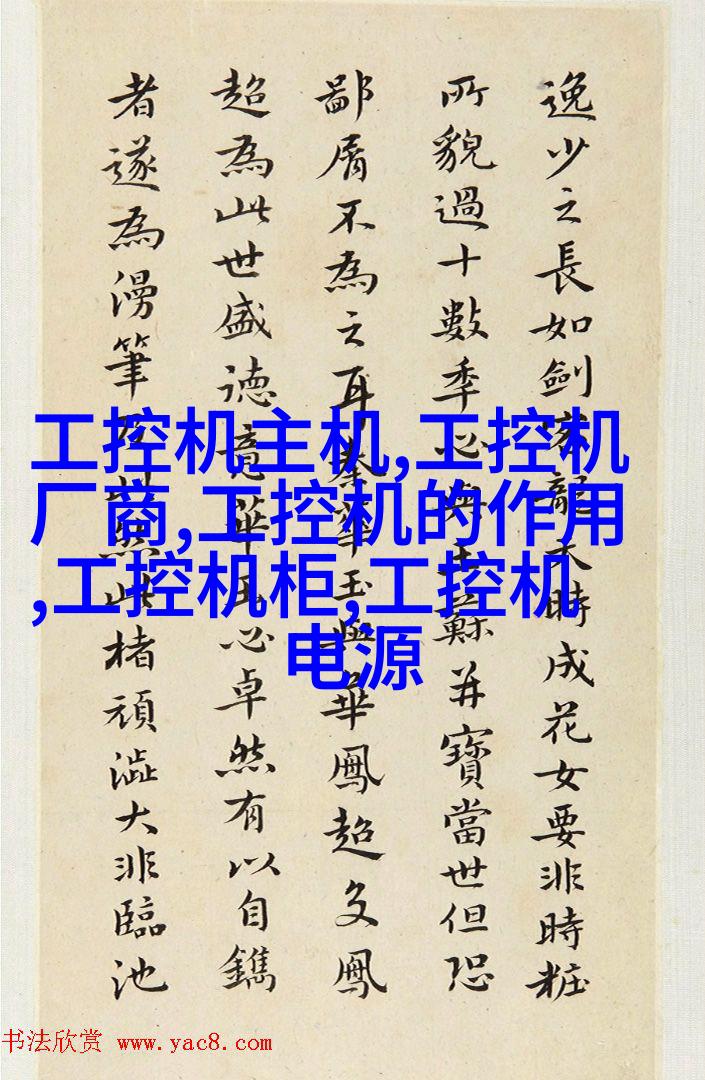 逸少之長如劍龍天時成花女要非時粧
所貌過十數季必與蘇并寶當世但恐
鄙屑不為之耳秦華玉與華鳳超文鳳
超為此世盛德竟華玉必卓然有以自鐫
者遂為漫筆然此楮頑澁大非臨池
工控机主机,工控机
厂商,工控机的作用
,工控机柜,工控机
电源
书法欣赏 www.yac8.com